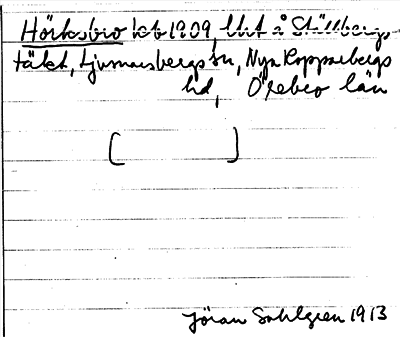 Hörksbro kb 1909, lht å Ställbergs
täkt, Ljusnarsbergs sn, Nya Kopparbergs
hd, Örebro län
[ ]
Jöran Sahlgren 1913